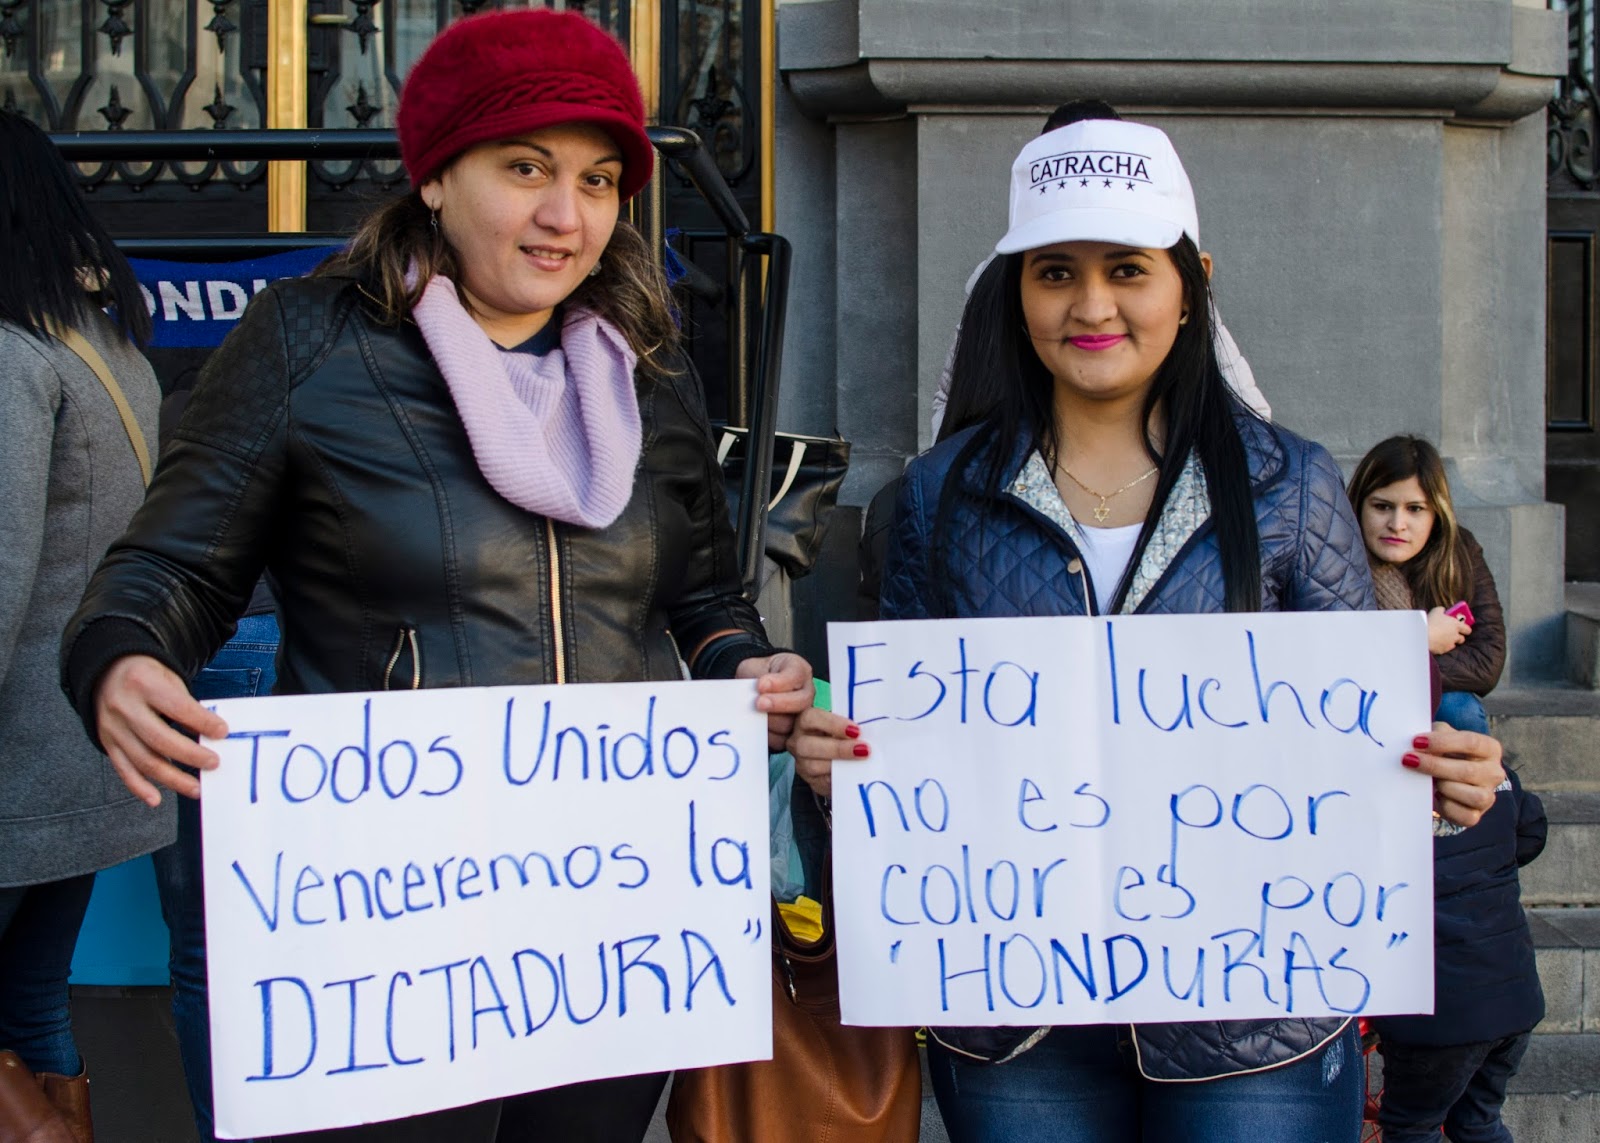 CATRACHA
"Todos Unidos
Venceremos la
DICTADURA"
Esta lucha
no es por
color es por
"HONDURAS"